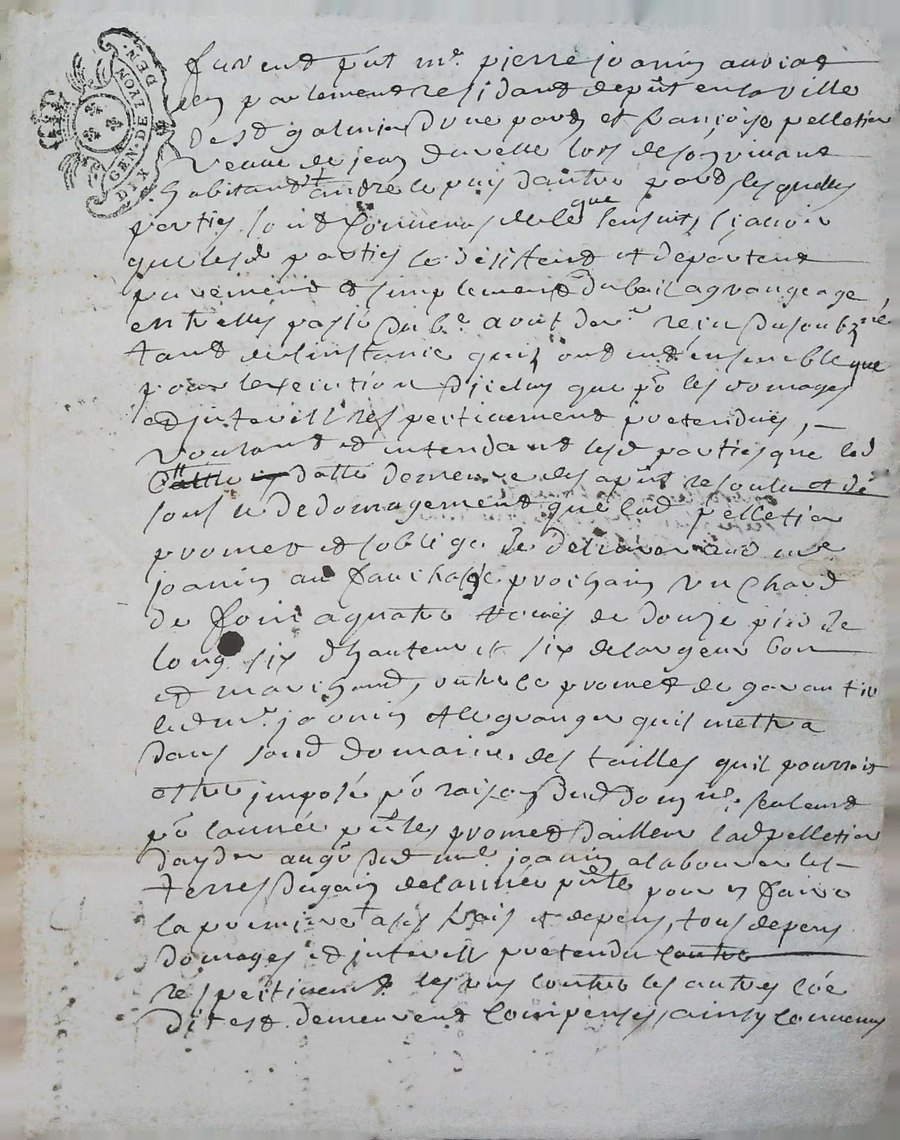 GEN · DE LYON
DIX DEN ·
furent p̃nt mre. pierre joanin avocat
en parlement residant deput en la ville
de st galmier d'une part et françoise pelletier
veuve de jean duvelle lors de son vivant
habitant a andre le puis d'autre part les quelles
parties sont convenus de ce que sensuit, scavoir
que lesd parties se desistent et departent
purement et simplement du bail a grangeage
entr elles passé du 6e. aout der. receu du soubzné
tant de linstance quilz ont end ensemble que
pour lexecution dicelui que po les domages
et interests respectivement pretendues, –
voulant et entendant lesd parties que led
datte demeure des a p̃nt resoulu et de
sous le dedomagement que lad pelletier
promet et soblige de delivrer aud mre
joanin au fauchaige prochain un chard
de foin a quatre de douze pied de
long six dhauteur et six de largeur bon
et marchand, outre ce promet de garantir
led mr. joanin et le granger quil mettra
dans sond domaine, des tailles quil pourroit
estre imposé po raison dud domne. seulemt
po lannée p̃nte, promet dailleur lad pelletier
dayder au gr dud mre joanin a labourer les
terres du gain de lannée p̃nte pour y faire
la premiere a ses frais et depens, tous depens
domages et interests pretendu contre
respectivemt les uns contre les autres coe
dit est demeurent compensés, ainsy convenus